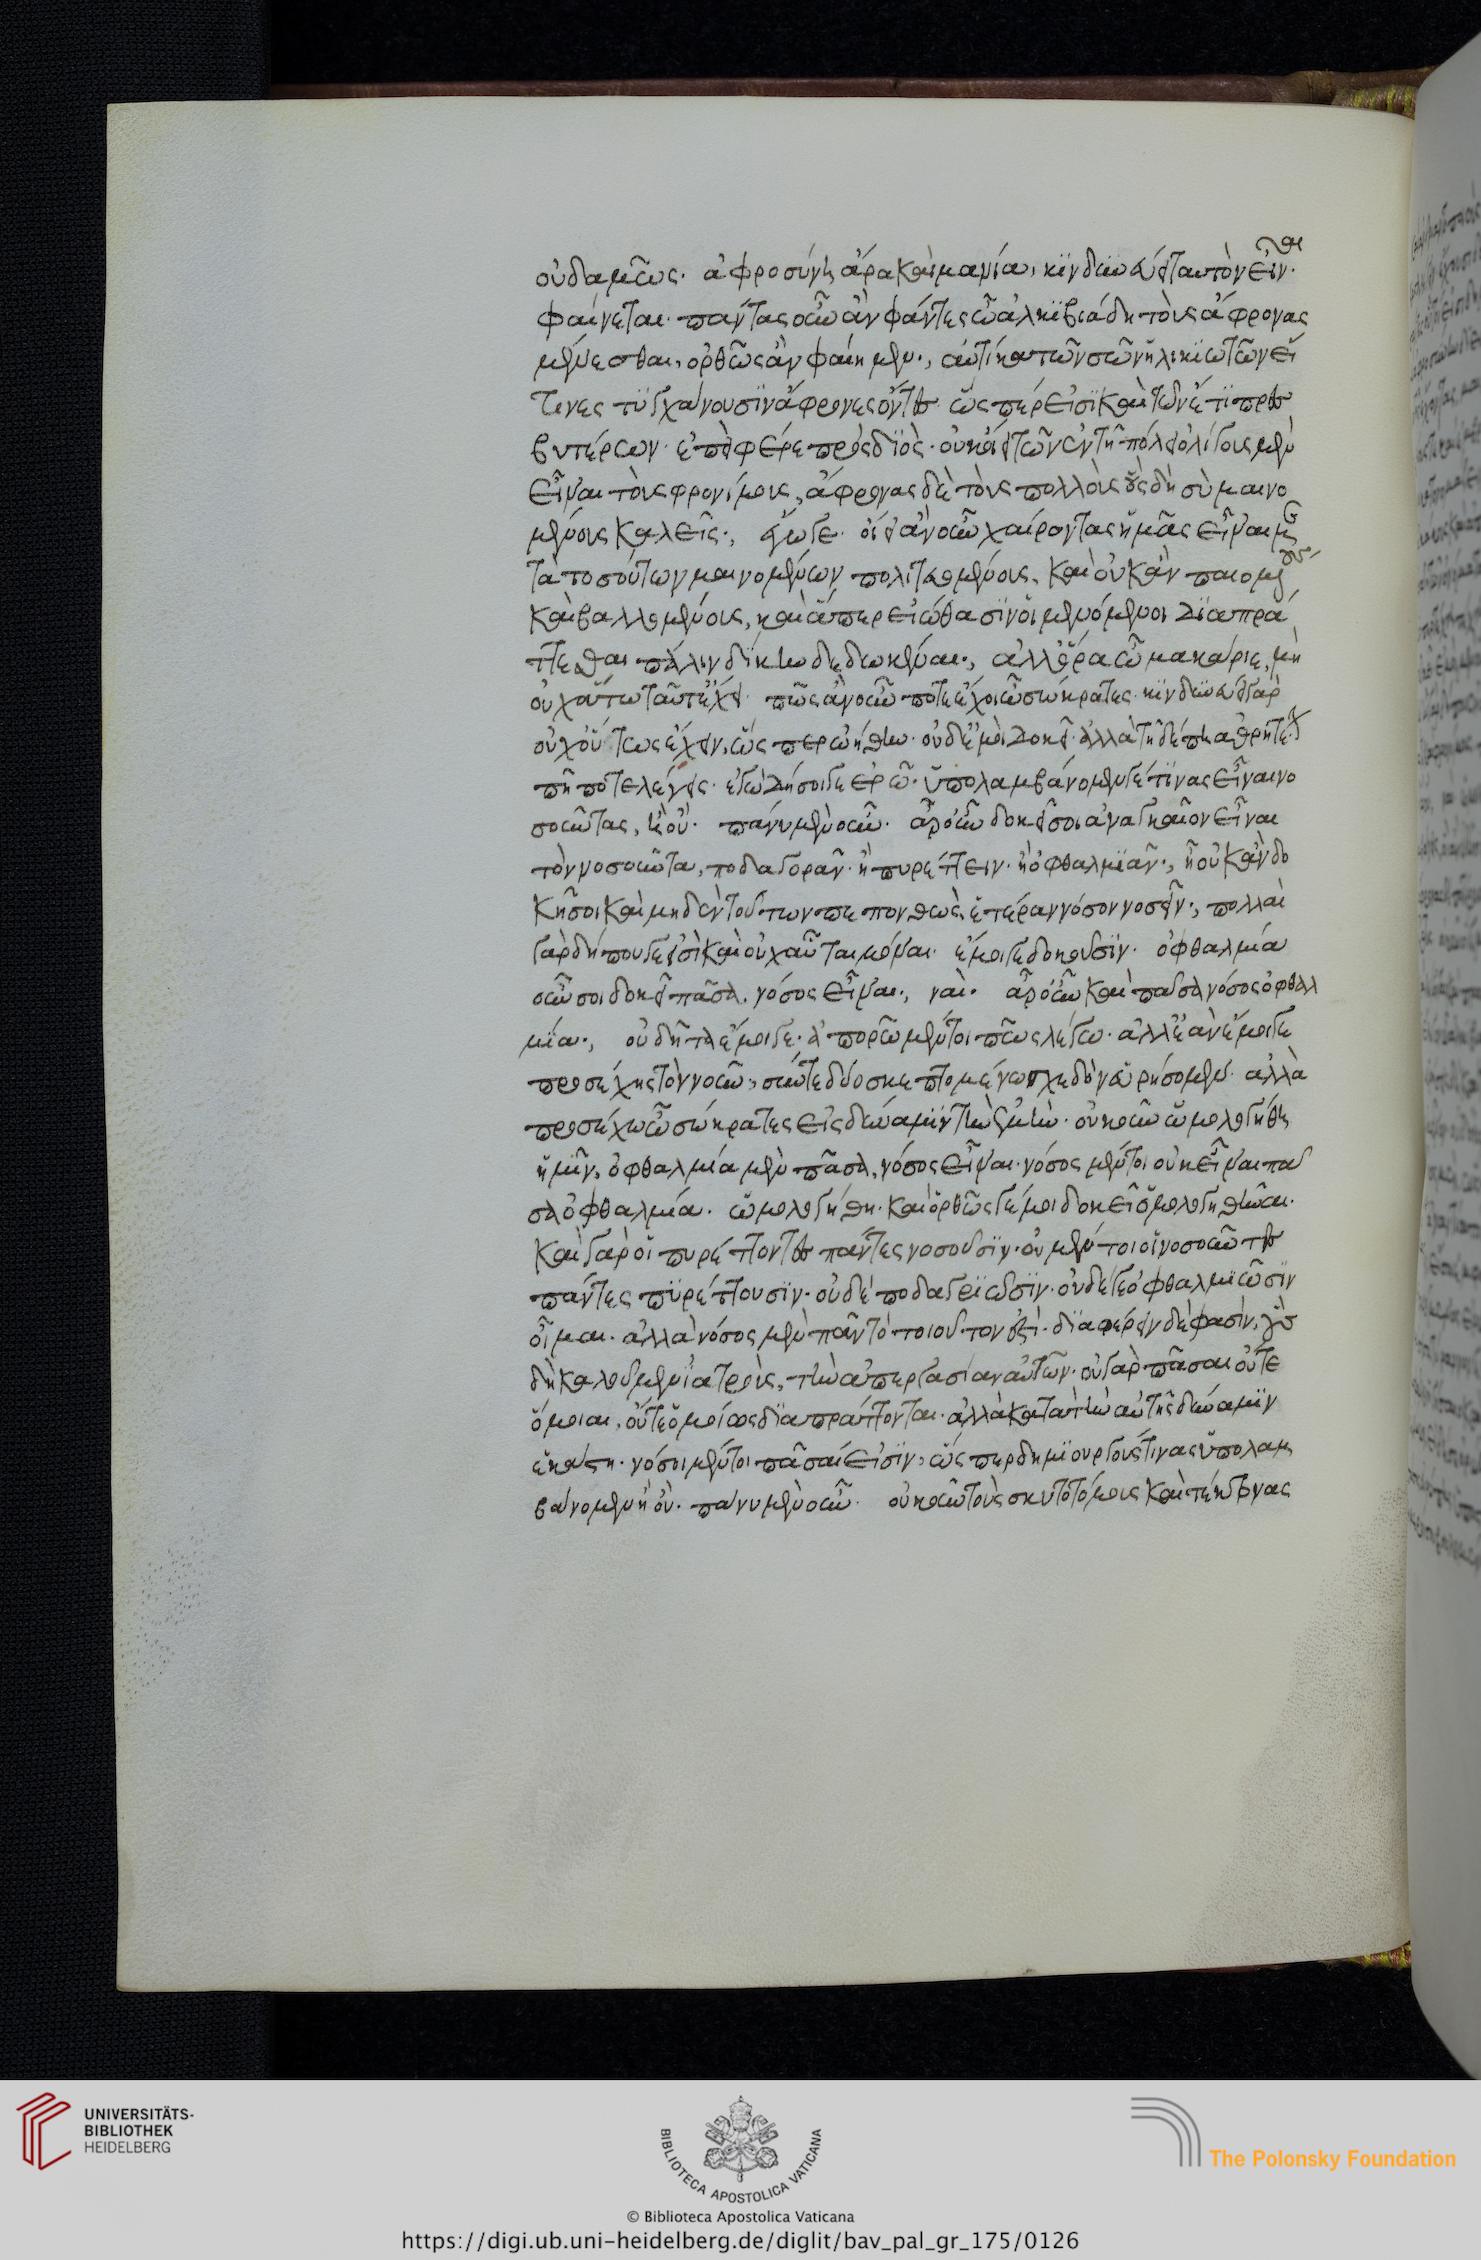 οὐδαμῶς. ἀφροσύνη ἄρα καὶ μανία, κινδυνεύει ταυτὸν εἶναι.
φαίνεται. πάντας οὖν ἂν φάντες ὦ ἀλκιβιάδη τοὺς ἄφρονας
μαίνεσθαι, ὀρθῶς ἂν φαίημεν., αὐτίκα τῶν σῶν ἡλικιωτῶν εἴ
τινες τυγχάνουσιν ἄφρονες ὄντες ὥσπερ εἰσὶ καὶ τῶν ἔτι πρεσ
βυτέρων. ἐπεὶ φέρε πρὸς διός. οὐκ οἴει τῶν ἐν τῇ πόλει ὀλίγους μὲν
εἶναι τοὺς φρονίμους, ἄφρονας δὲ τοὺς πολλοὺς οὓς δὴ σὺ μαινο
μένους καλεῖς., ἔγωγε. οἴει ἂν οὖν χαίροντας ἡμᾶς εἶναι με
τὰ τοσούτων μαινομένων πολιτευομένους, καὶ οὐκ ἂν παιομένους
καὶ βαλλομένους, καὶ ἅπερ εἰώθασιν οἱ μαινόμενοι διαπρά
ττεσθαι πάλιν δίκην δεδωκέναι., ἀλλ' ὅρα ὦ μακάριε, μὴ
οὐχ οὕτω ταῦτ' ἔχει. πῶς ἂν οὖν ποτε ἔχοι ὦ σώκρατες. κινδυνεύει γὰρ
οὐχ οὕτως ἔχειν, ὥσπερ ᾠήθην. οὐδ' ἐμοὶ δοκεῖ. ἀλλὰ τῇδέ πῃ ἀθρητέον
πῇ ποτε λέγεις. ἐγὼ δή σοι γε ἐρῶ. ὑπολαμβάνομέν γέ τινας εἶναι νο
σοῦντας, ἢ οὔ. πάνυ μὲν οὖν. ἆρ' οὖν δοκεῖ σοι ἀναγκαῖον εἶναι
τὸν νοσοῦντα, ποδαγρᾶν. ἢ πυρέττειν. ἢ ὀφθαλμιᾶν., ἢ οὐκ ἂν δο
κῇ σοι καὶ μηδὲν τούτων πεπονθὼς ἑτέραν νόσον νοσεῖν., πολλαὶ
γὰρ δήπου γε εἰσὶ καὶ οὐχ αὗται μόναι. ἔμοιγε δοκοῦσιν. ὀφθαλμία
οὖν σοι δοκεῖ πᾶσα, νόσος εἶναι., ναί. ἆρ' οὖν καὶ πᾶσα νόσος ὀφθαλ
μία., οὐ δῆτα ἔμοιγε. ἀπορῶ μέντοι πῶς λέγω. ἀλλ' ἐὰν ἔμοιγε
προσέχῃς τὸν νοῦν, σύν τε δύο σκεπτομένω σχεδὸν εὑρήσομεν. ἀλλὰ
προσέχω ὦ σώκρατες εἰς δύναμιν τὴν ἐμήν. οὐκοῦν ὡμολογήθη
ἡμῖν, ὀφθαλμία μὲν πᾶσα, νόσος εἶναι. νόσος μέντοι οὐκ εἶναι πᾶ
σα ὀφθαλμία. ὡμολογήθη. καὶ ὀρθῶς γέ μοι δοκεῖ ὁμολογηθῆναι.
καὶ γὰρ οἱ πυρέττοντες πάντες νοσοῦσιν. οὐ μέντοι οἱ νοσοῦντες
πάντες πυρέττουσιν. οὐδὲ ποδαγριῶσιν. οὐδέ γε ὀφθαλμιῶσιν
οἶμαι. ἀλλὰ νόσος μὲν πᾶν τὸ τοιοῦτον ἐστί. διαφέρειν δέ φασιν, οὓς
δὴ καλοῦμεν ἰατρούς, τὴν ἀπεργασίαν αὐτῶν. οὐ γὰρ πᾶσαι οὔτε
ὅμοιαι, οὔτε ὁμοίως διαπράττονται. ἀλλὰ κατὰ τὴν αὑτῆς δύναμιν
ἑκάστη. νόσοι μέντοι πᾶσαί εἰσιν, ὥσπερ δημιουργούς τινας ὑπολαμ
βάνομεν ἢ οὔ. πάνυ μὲν οὖν. οὐκοῦν τοὺς σκυτοτόμους καὶ τέκτονας
UNIVERSITÄTS-
BIBLIOTHEK
HEIDELBERG
BIBLIOTECA APOSTOLICA VATICANA
The Polonsky Foundation
© Biblioteca Apostolica Vaticana
https://digi.ub.uni-heidelberg.de/diglit/bav_pal_gr_175/0126